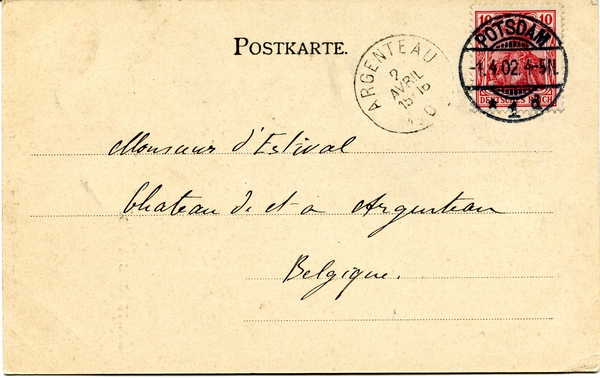 POSTKARTE.
10 10
DEUTSCHES REICH
POTSDAM
-1.4.02.4-5N.
* 1 d
ARGENTEAU
2
AVRIL
15-16
Monsieur d'Estival
Chateau de et a Argenteau
Belgique.